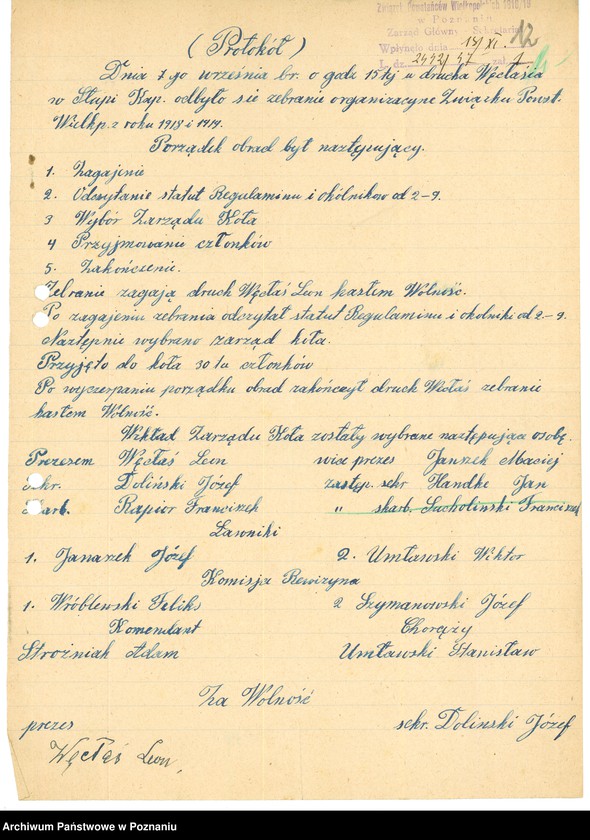 Związek Powstańców Wielkopolskich 1918/19
w Poznaniu
Zarząd Główny Sekretariat
Wpłynęło dnia 18/XI. 12
L. dz. 2432/47 zał.
(Protokół)
Dnia 7 go września br. o godz 15tej u drucha Węctasia
w Słupi Kap. odbyło sie zebranie organizacyjne Związku Powst.
Wielkp. z roku 1918 i 1919.
Porządek obrad był naztępujący.
1. Zagajenie
2. Odczytanie statut Regulaminu i okólnikow od 2-9.
3 Wybór Zarządu Koła
4 Przyjmowanie członków
5. Zakończenie.
Zebranie zagają druch Węctaś Leon hasłem Wolność.
Po zagajeniu zebrania odczytał statut Regulaminu i okolniki od 2-9.
Naztępnie wybrano zarząd koła.
Przyjęto do koła 30 tu członków
Po wyczerpaniu porządku obrad zakończył druch Węctaś zebranie
hasłem Wolność.
Wkład Zarządu Koła zostały wybrane naztępująca osobę.
Prezesem Węctaś Leon wice prezes Janzek Maciej
Sekr. Doliński Józef zastęp. sekr Handke Jan
Skarb. Rapior Franciszek " skarb. Sucholinski Franciszek
Ławniki
1. Janaszek Józef 2. Umławski Wiktor
Komisja Rewizyna
1. Wróblewski Feliks 2 Szymanowski Józef
Komendant Chorąży
Stroźniak Adam Umławski Stanisław
Za Wolność
prezes sekr. Doliński Józef
Węctaś Leon
Archiwum Państwowe w Poznaniu